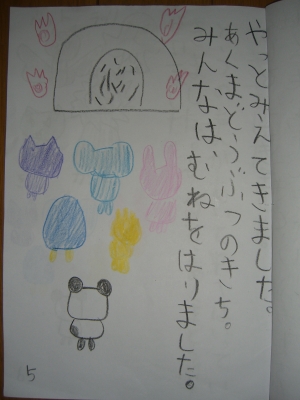 やっとみえてきました。
あくまどうぶつのきち。
みんなは、むねをはりました。
5